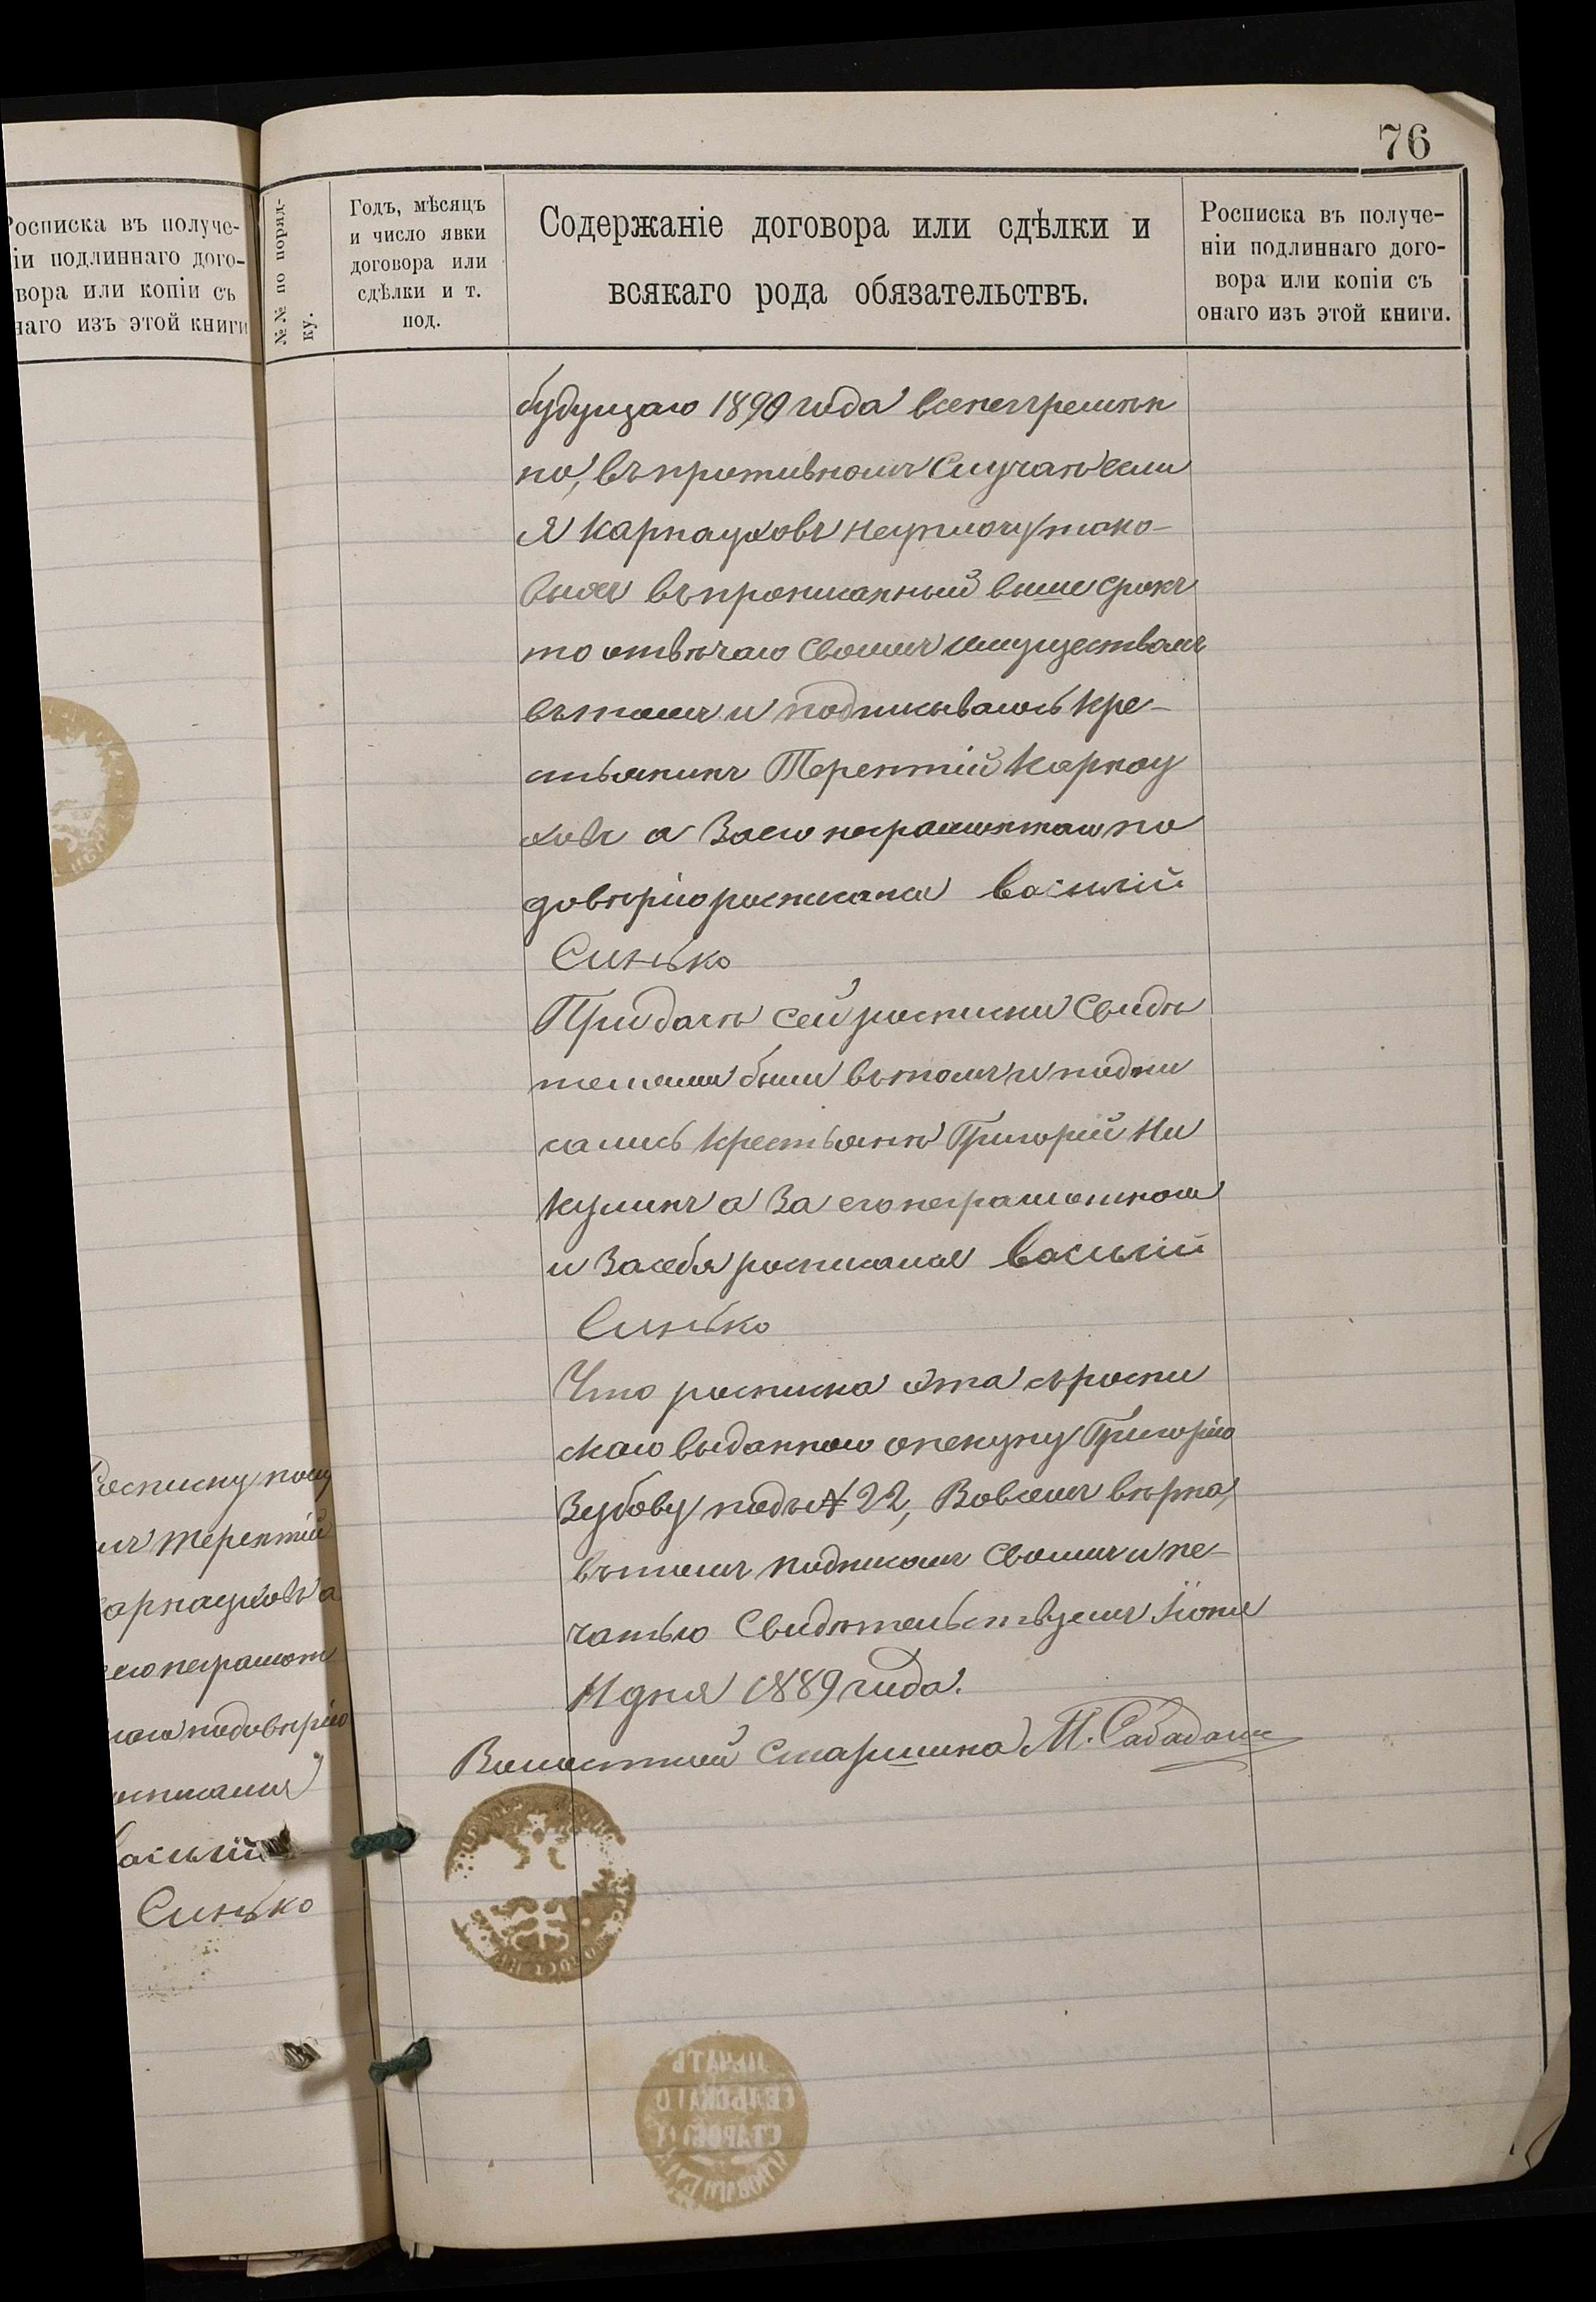 76
Росписка въ получе-
іи подлиннаго дого-
вора или копіи съ
наго изъ этой книги
№№ по поряд-
ку.
Годъ, мѣсяцъ
и число явки
договора или
сдѣлки и т.
под.
Содержаніе договора или сдѣлки и
всякаго рода обязательствъ.
Росписка въ получе-
ніи подлиннаго дого-
вора или копіи съ
онаго изъ этой книги.
Росписку полу
илъ Терентій
арнауховъ а
его неграмот
наго подовѣрію
осписался
асилій
Синько
будущаго 1890 года всенепремѣн
но, въ противномъ случаѣ если
я Карнауховъ неуплочу тако-
выхъ въ прописанный выше срокъ
то отвѣчаю своимъ имуществомъ
въ томъ и подписываюсь Кре-
стьянинъ Терентій Карнау
ховъ а за его неграмотнаго по
довѣрію росписался Василій
Синько
При дачѣ сей росписки свидѣ
телями были въ томъ и подпи
сались крестьяне Григорій Ни
кулинъ а за его неграмотнаго
и за себя росписался Василій
Синько
Что росписка эта съ роспи
скою выданною опекуну Григорію
Зубову подъ № 22, во всемъ вѣрна,
въ томъ подписомъ своимъ и пе-
чатью свидѣтельствуемъ Іюня
11 дня 1889 года.
Волостной Старшина М. Сабадаш
ПЕЧАТЬ
СЕЛЬСКАГО
СТАРОСТЫ